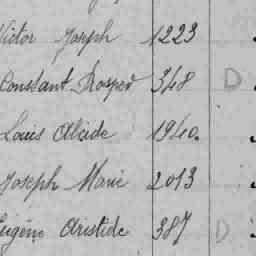 Victor Joseph 1223
Constant Prosper 348 D
Louis Alcide 1940.
Joseph Marie 2013
Eugène Aristide 387 D